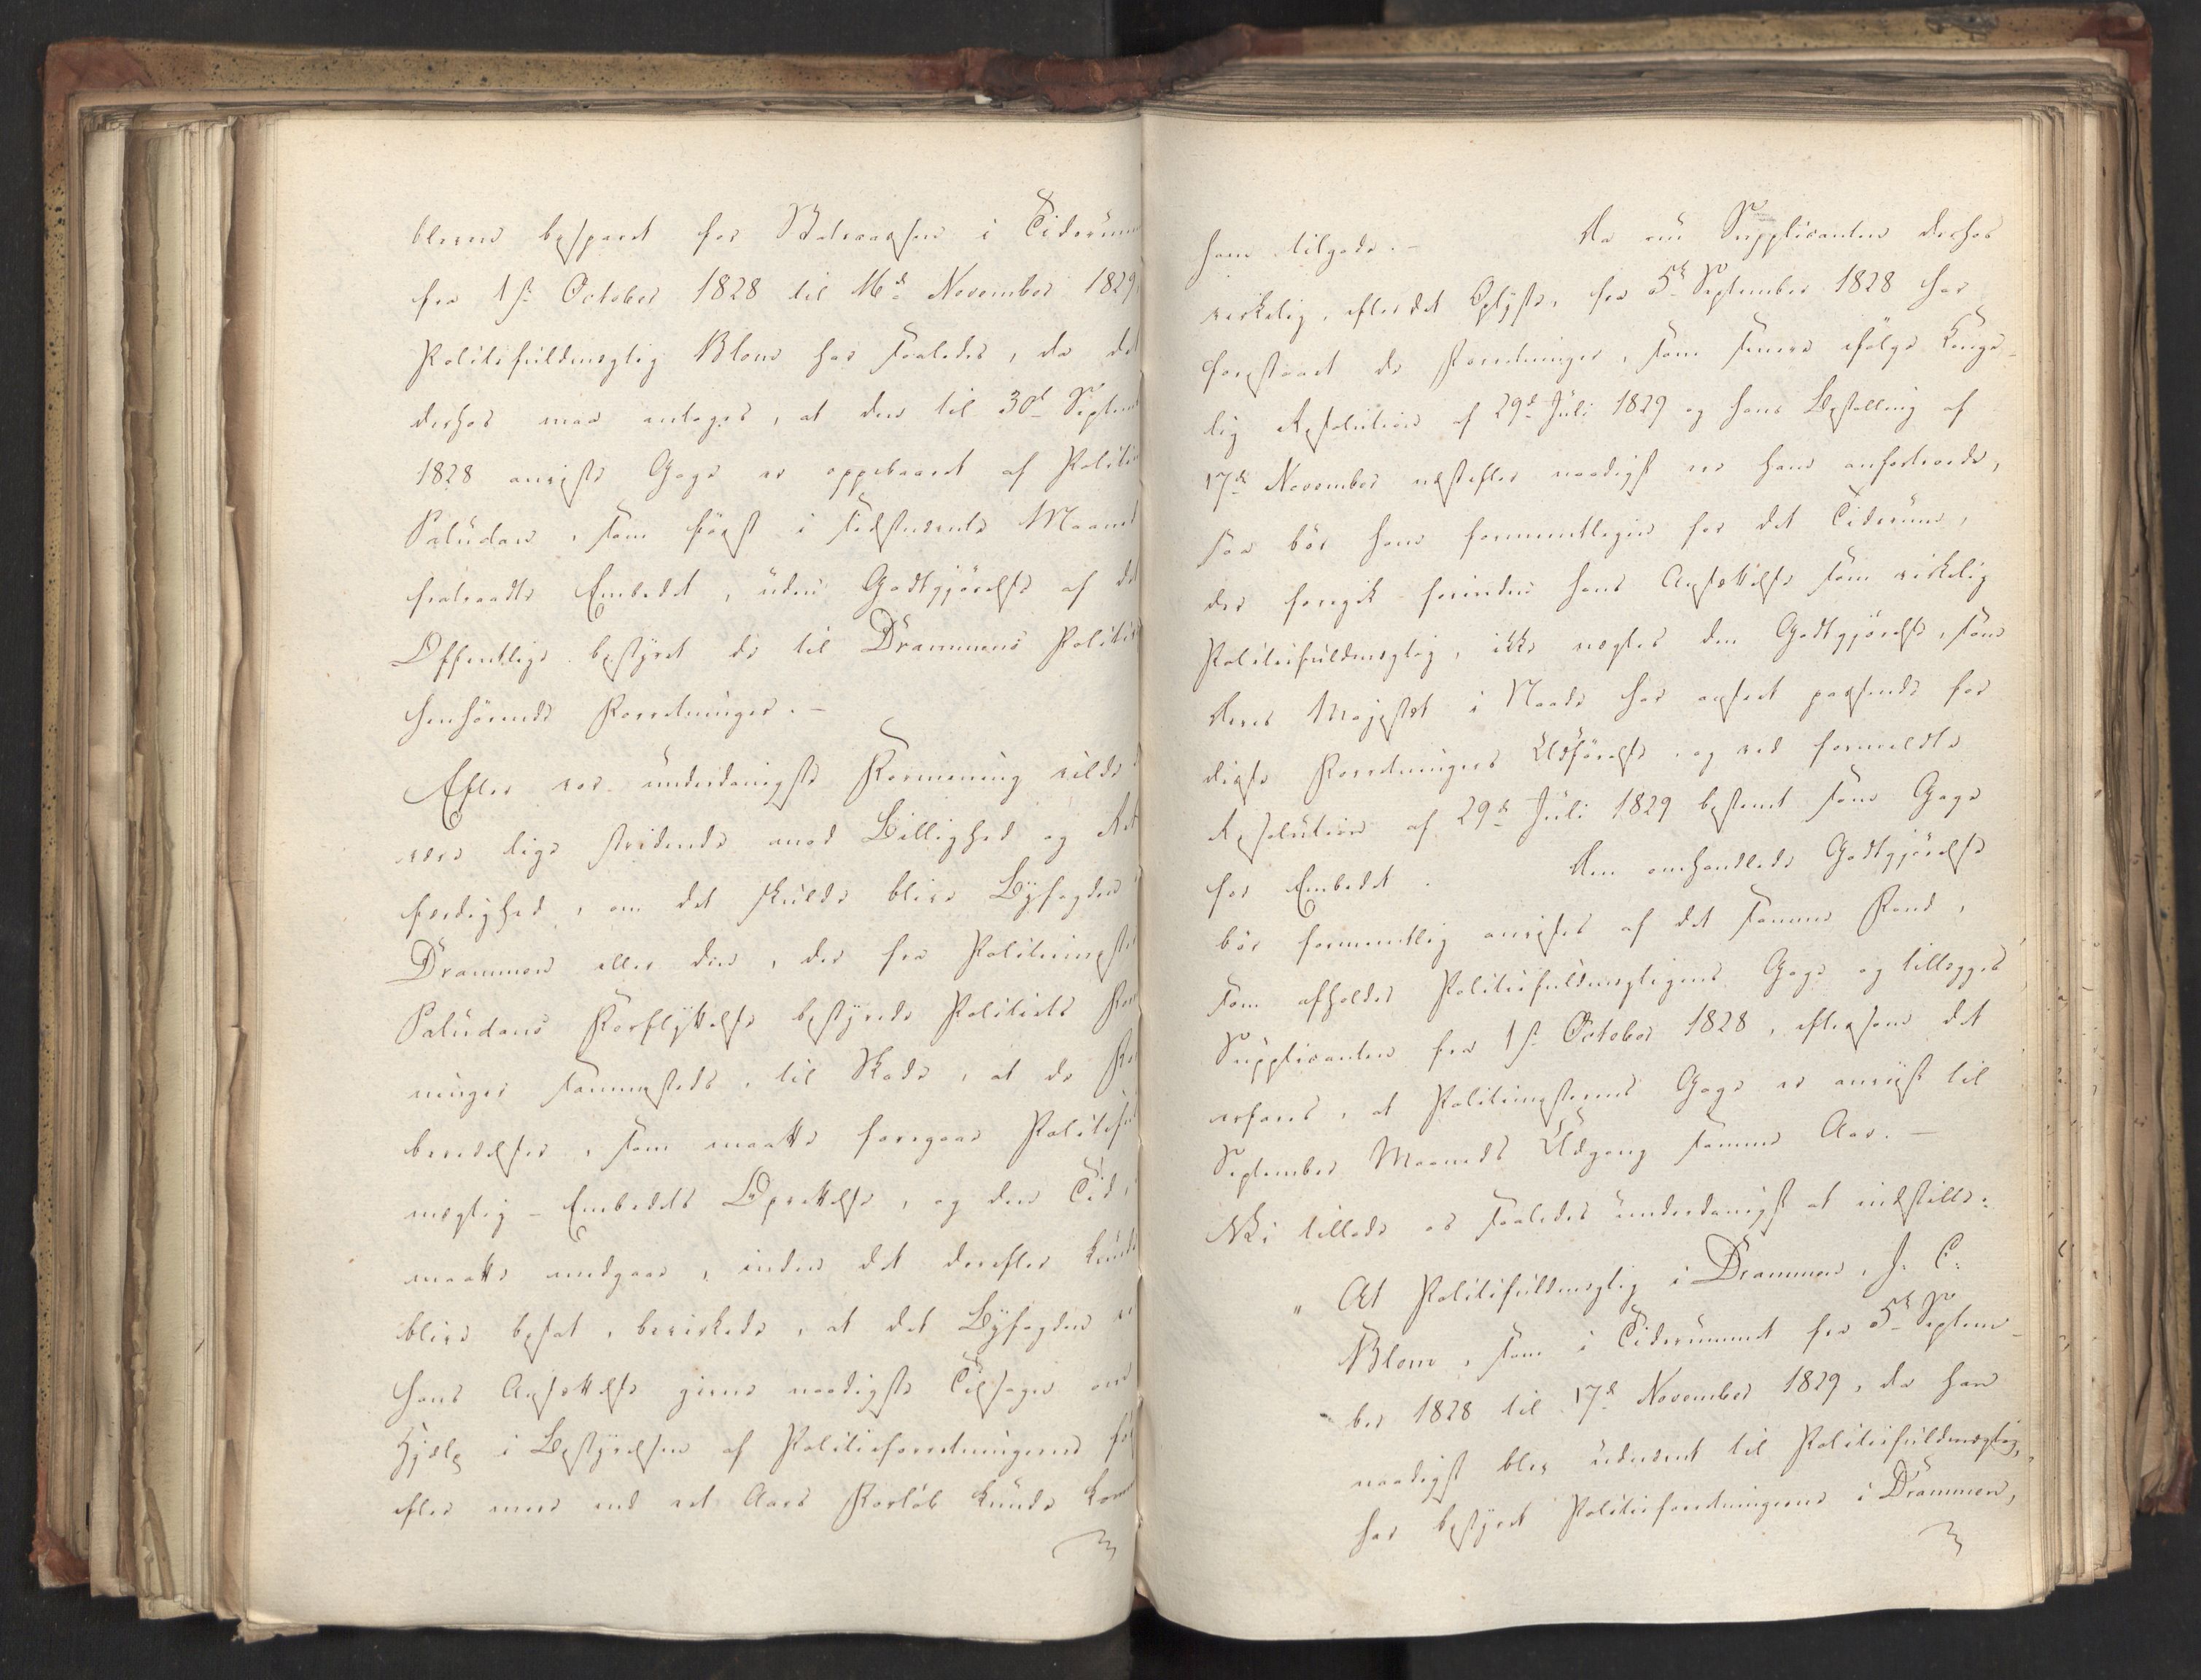 bleven besparet for Statscassen i Tidsrum
fra 1ste October 1828 til 16de November 1829,
Politifuldmægtig Blom har saaledes, da det
derhos maa antages, at den til 30de Septem
1828 anviste Gage er oppebaaret af Politi
Paludan, som først i sidstnævnte Maaned
fratraadte Embedet, uden Godtgjörelse af det
Offentlige bestyret de til Drammens Politi
henhörende Forretninger. –
Efter vor underdanigste Formening vilde
være lige stridende mod Billighed og Ret
færdighed, om det skulde blive Byfogden
Drammen eller den, der fra Politimeste
Paludans Forflyttelse bestyrede Politiets For
ninger sammesteds, til Skade, at de For
beredelser, som maatte foregaae Politifu
mægtig-Embedets Oprettelse, og den Tid,
maatte medgaae, inden det derefter kund
blive besat, bevirkede, at det Byfogden ve
hans Ansættelse givne naadigste Tilsagn om
Hjelp i Bestyrelsen af Politieforretningerne för
efter meer end et Aars Forlöb kunde kom
ham tilgode. – Da nu Supplicanten derhos
virkelig, efter det Oplyste, fra 5te September 1828 har
forestaaet de Forretninger, som senere ifølge Konge-
lig Resolution af 29de Juli 1829 og hans Bestalling af
17de November næstefter naadigst ere ham anfortroede,
saa bör ham formeentligen for det Tidsrum,
der foregik forinden hans Ansættelse som virkelig
Politiefuldmægtig, ikke nægtes den Godtgjörelse, som
Deres Majestæt i Naade har anseet passende for
disse Forretningers Udförelse og ved formeldte
Resolution af 29de Juli 1829 bestemt som Gage
for Embedet. Den omhandlede Godtgjörelse
bör formeentlig anvises af det samme Fond,
som afholder Politiefuldmægtigens Gage og tillægges
Supplicanten fra 1ste October 1828, eftersom det
erfares, at Politimesterens Gage er anviist til
September Maaneds Udgang samme Aar. –
Vi tillade os saaledes underdanigst at indstille:
" At Politifuldmægtig i Drammen, J. C.
Blom, som i Tidsrummet fra 5te Septem-
ber 1828 til 17de November 1829, da han
naadigst blev udnævnt til Politiefuldmægtig,
har bestyret Politieforretningerne i Drammen,